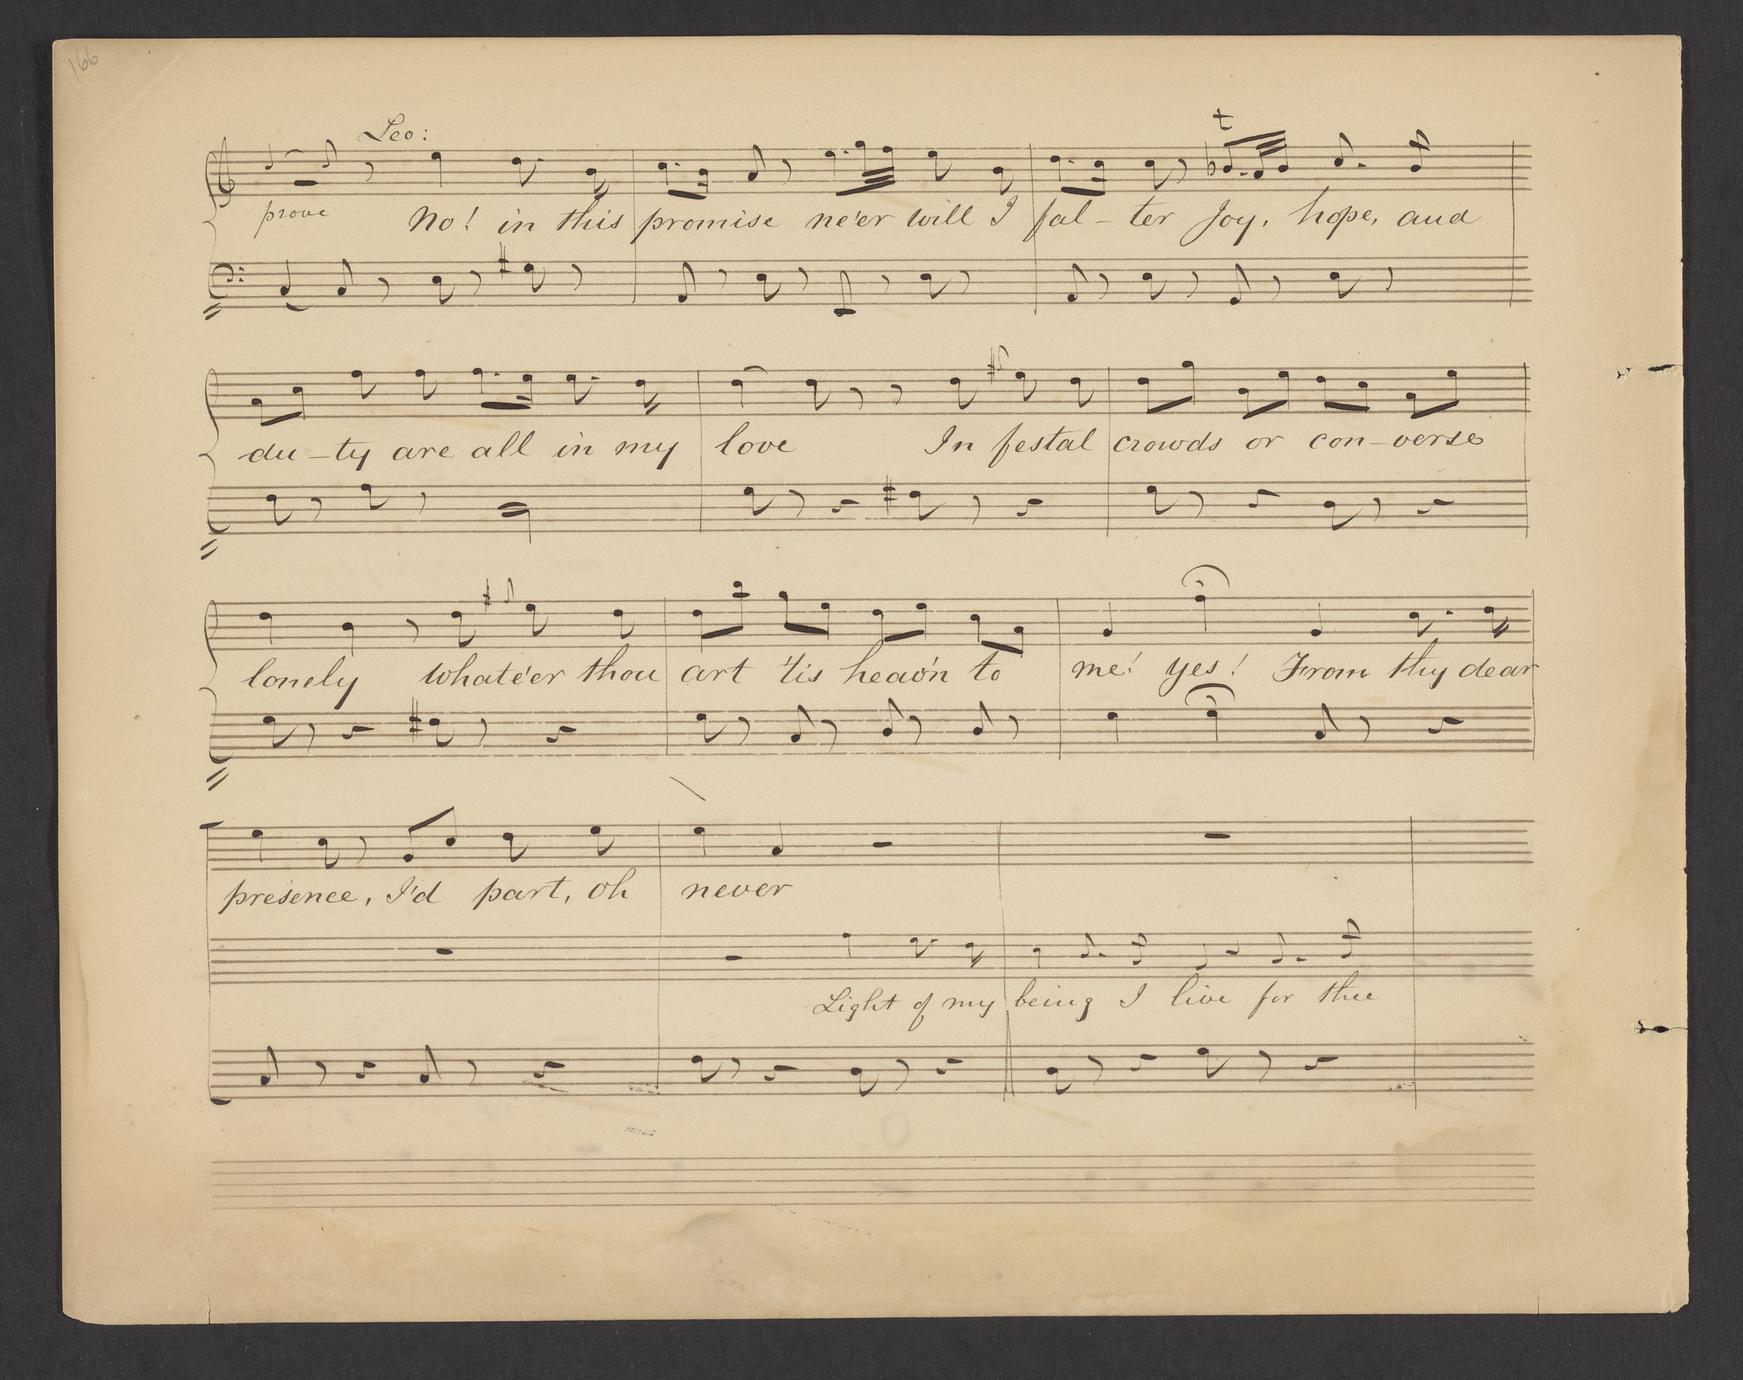 166
Leo:
t
prove No! in this promise ne'er will I fal - ter Joy, hope, and
du - ty are all in my love In festal crowds or con - verse
lonely whate'er thou art 'tis heav'n to me! yes! From thy dear
presence, I'd part, oh never
Light of my being I live for thee